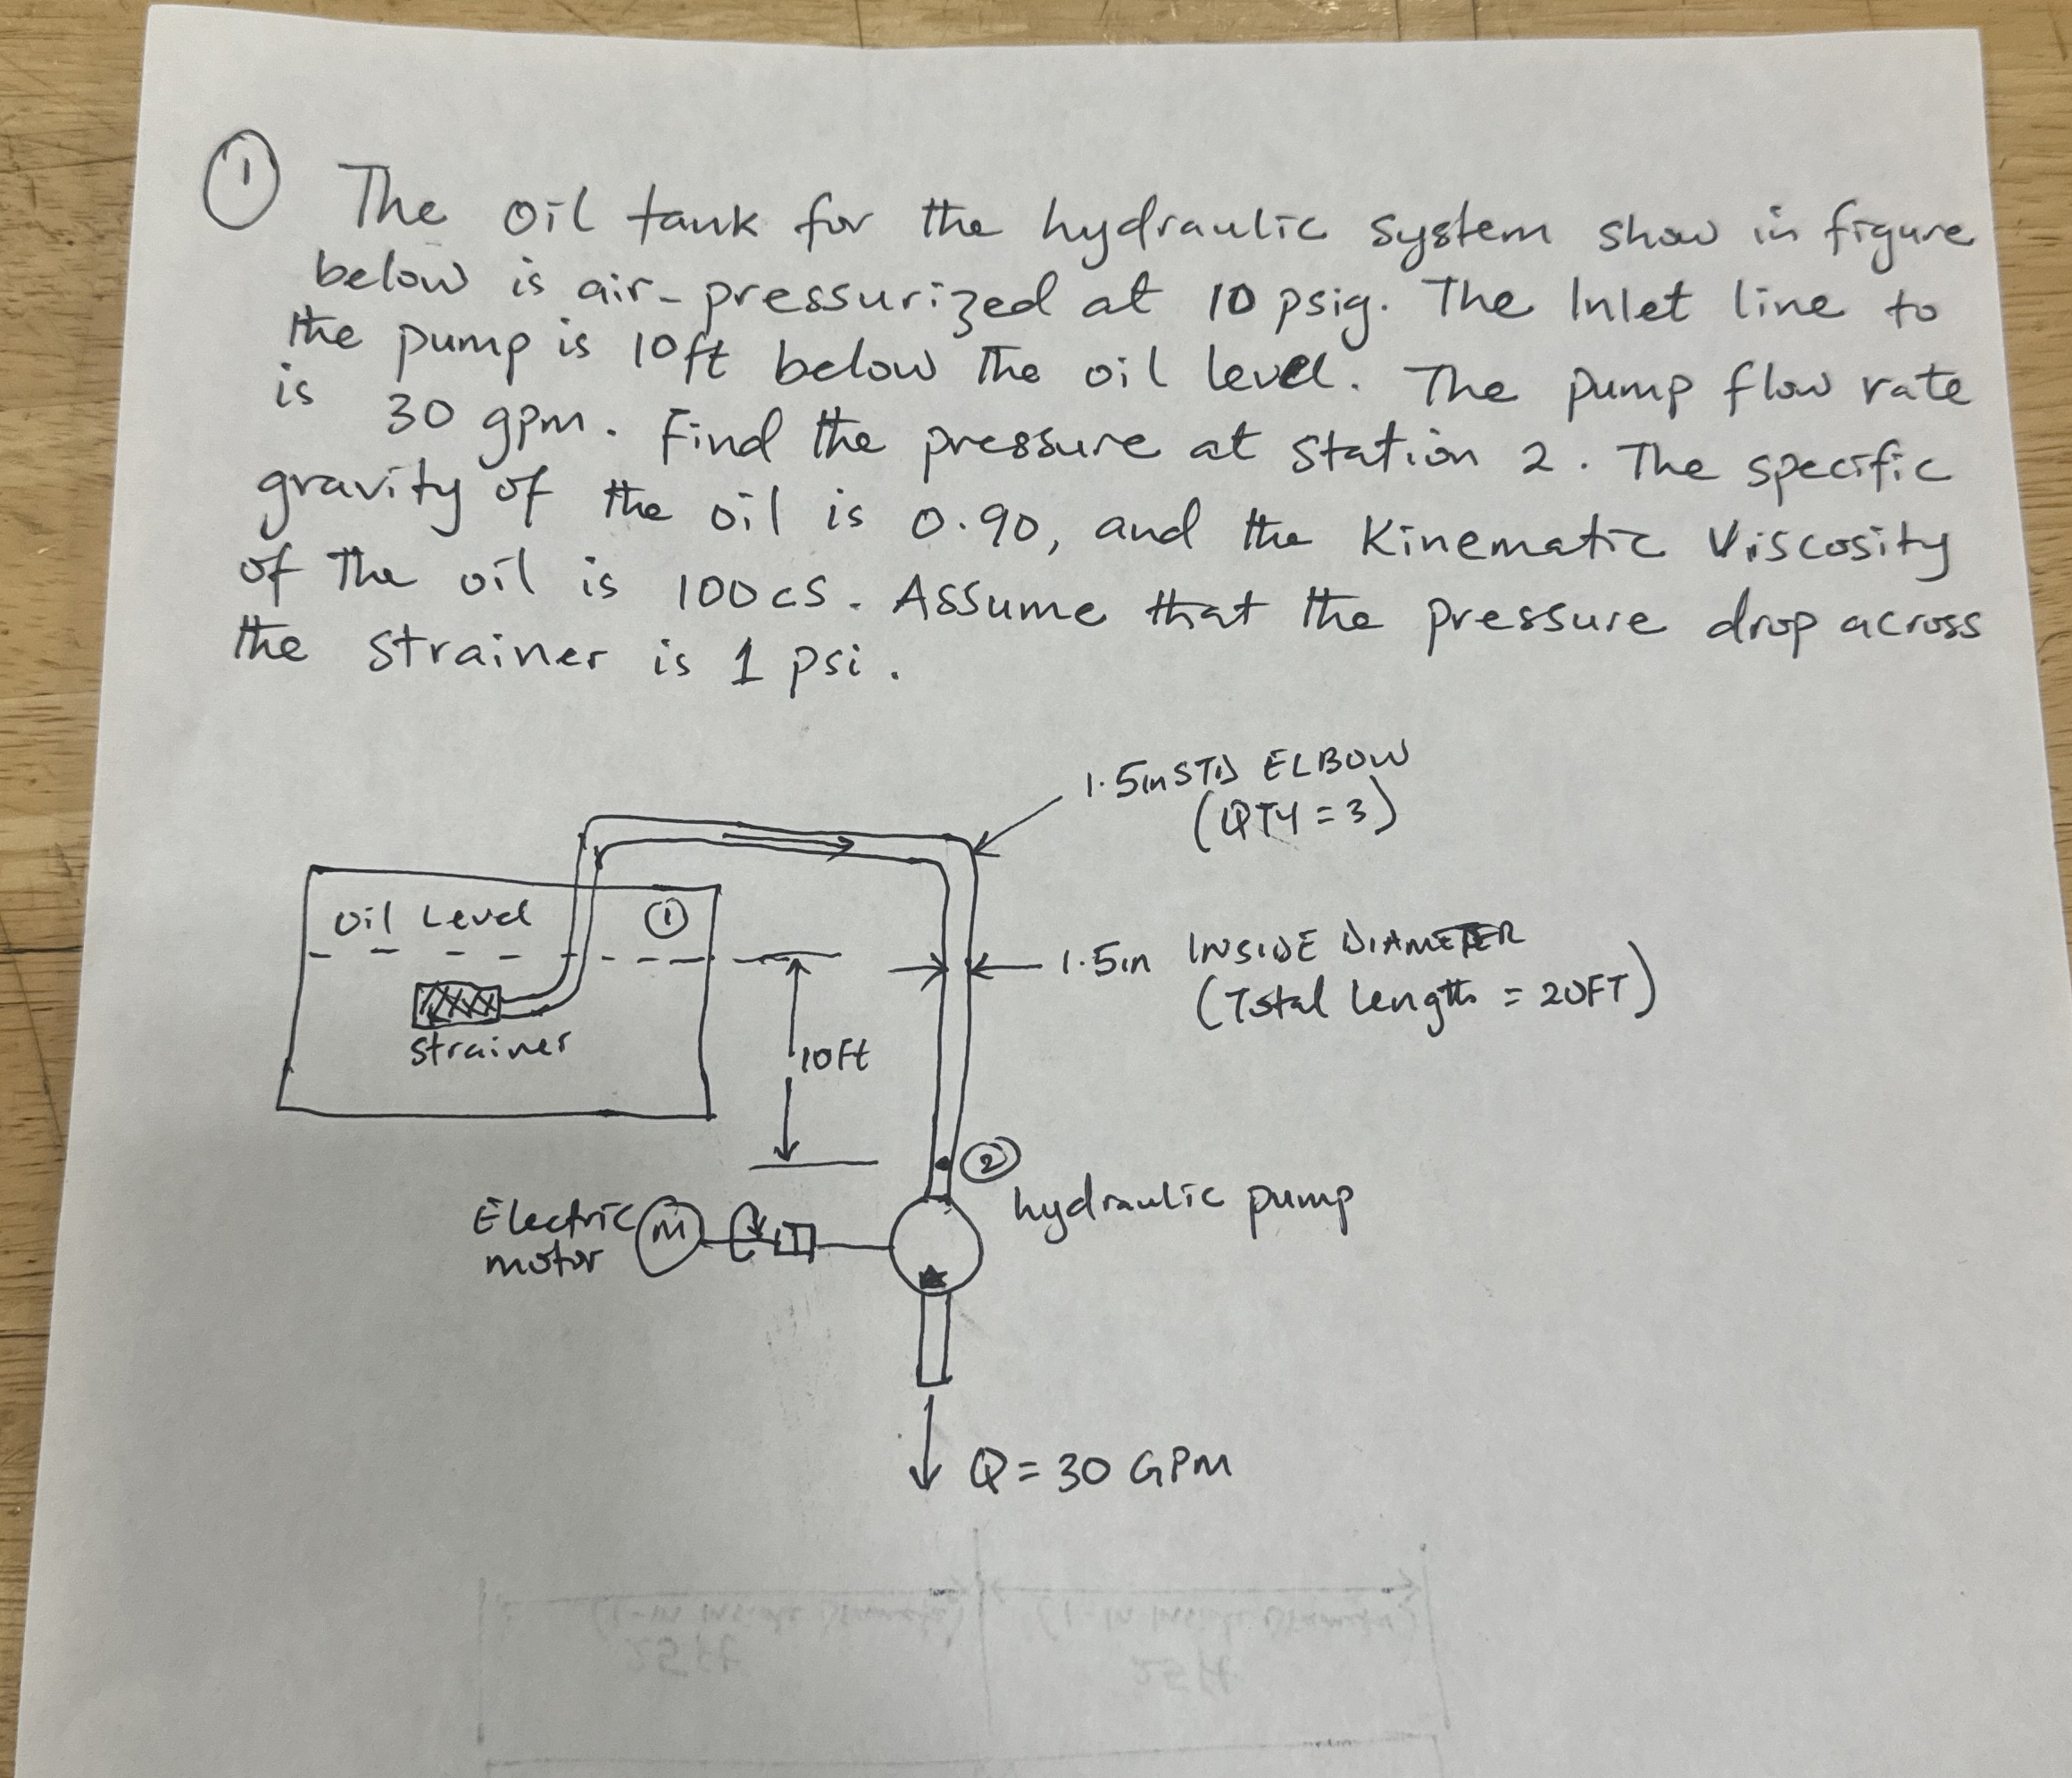 ① The oil tank for the hydraulic system show in figure
below is air-pressurized at 10 psig. The Inlet line to
the pump is 10ft below the oil level. The pump flow rate
is 30 gpm. Find the pressure at station 2. The specific
gravity of the oil is 0.90, and the Kinematic Viscosity
of the oil is 100cS. Assume that the pressure drop across
the strainer is 1 psi.
1.5in STD ELBOW
(QTY = 3)
Oil Level ①
1.5in INSIDE DIAMETER
(Total Length = 20FT)
strainer
10Ft
②
hydraulic pump
Electric
motor
M
Q = 30 GPM